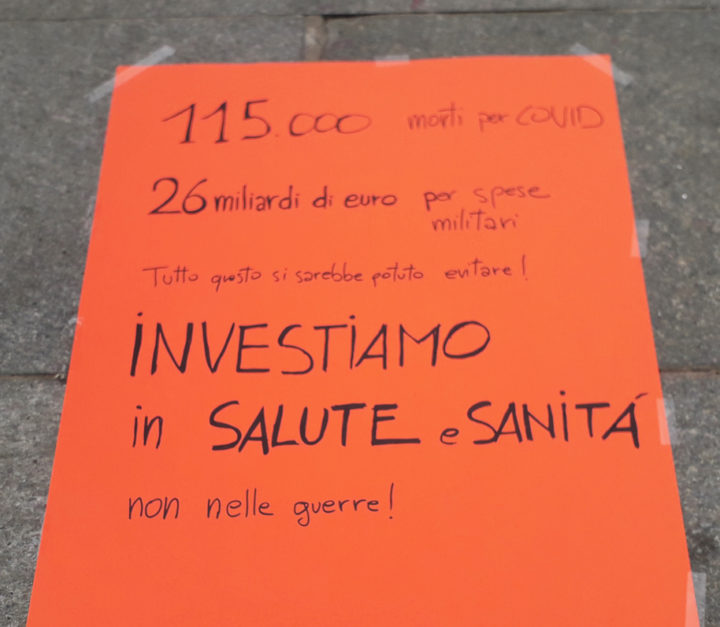 115.000 morti per COVID
26 miliardi di euro per spese
militari
Tutto questo si sarebbe potuto evitare!
iNVESTiAMO
in SALUTE e SANiTÁ
non nelle guerre!